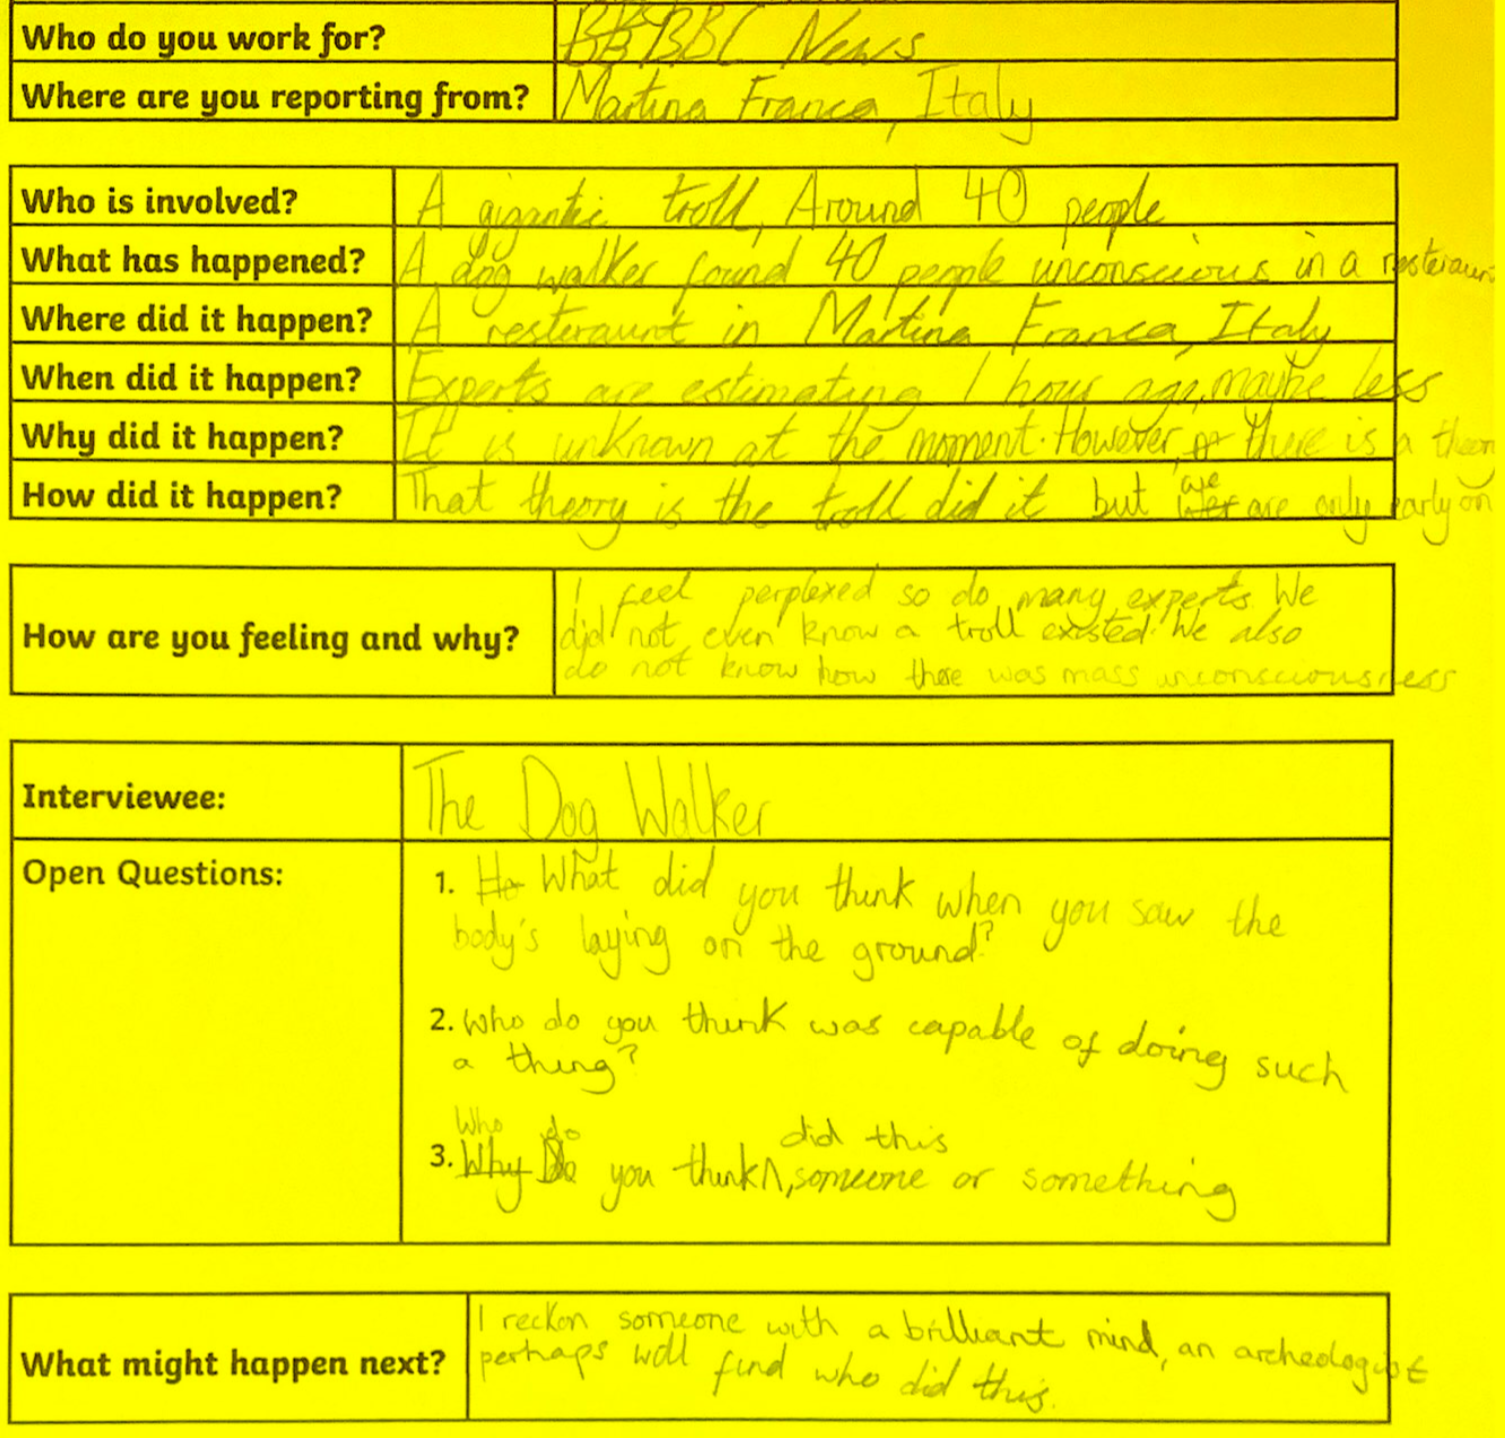 Who do you work for? BBC News
Where are you reporting from? Martina Franca, Italy
Who is involved? A gigantic troll, Around 40 people
What has happened? A dog walker found 40 people unconscious in a resteraunt
Where did it happen? A resteraunt in Martina Franca, Italy
When did it happen? Experts are estimating 1 hour ago, maybe less
Why did it happen? It is unknown at the moment. However, there is a theory
How did it happen? That theory is the troll did it but we are only early on
How are you feeling and why?
I feel perplexed so do many experts. We
did not even know a troll existed. We also
do not know how there was mass unconsciousness
Interviewee: The Dog Walker
Open Questions:
1. Ho What did you think when you saw the
body's laying on the ground?
2. Who do you think was capable of doing such
a thing?
Who do did this
3. Why Do you think, someone or something
What might happen next?
I reckon someone with a brilliant mind, an archeologist
perhaps will find who did this.